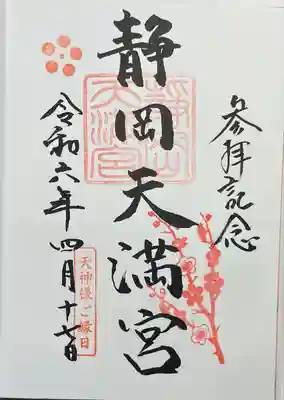 参拝記念
静岡天満宮
令和六年四月十七日
天神様ご縁日